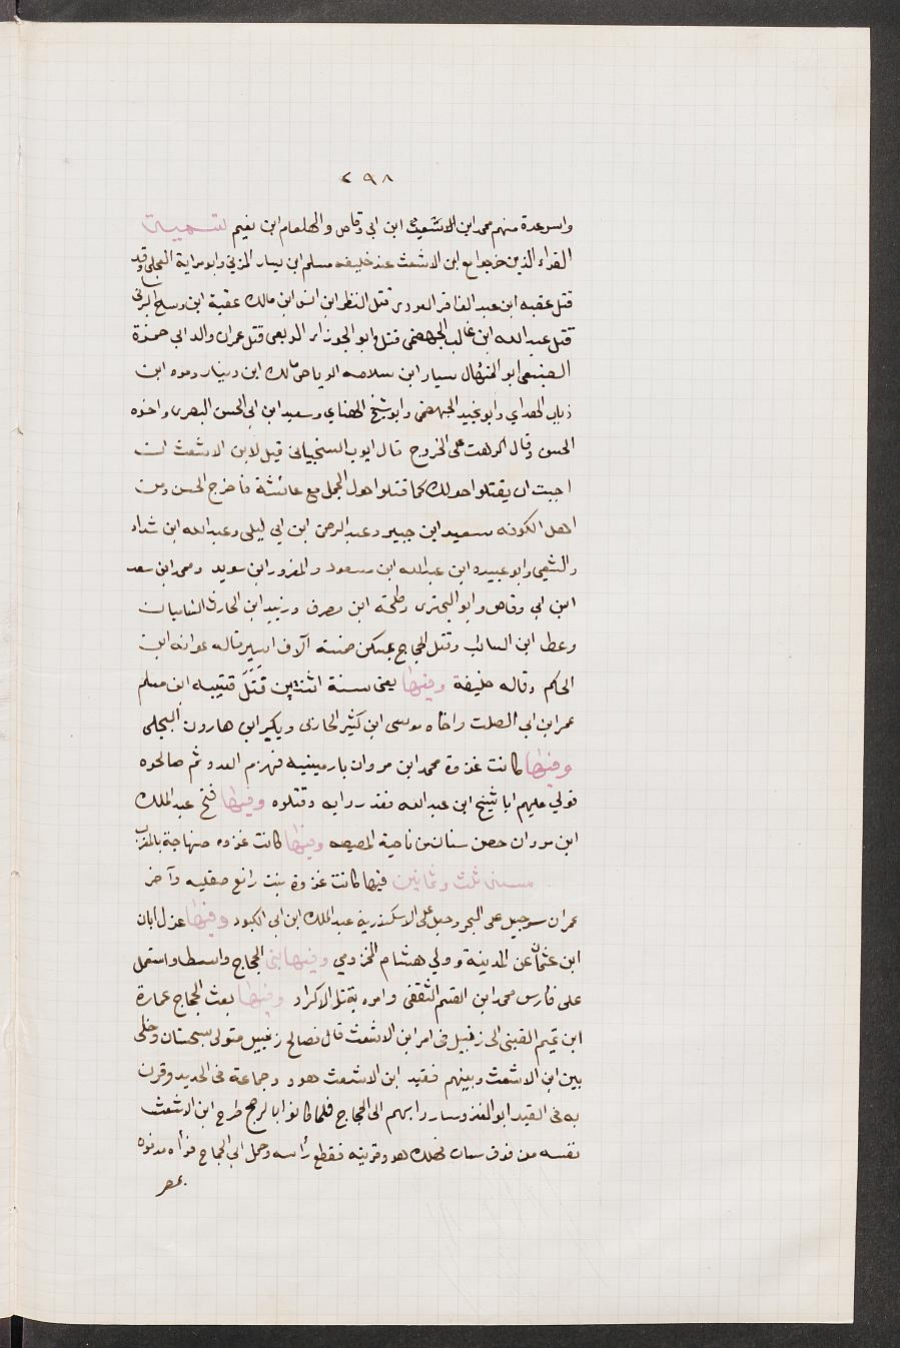 ٢٩٨
واسر عدة منهم محمد ابن الاشعث ابن ابي وقاص والهلعام ابن نعيم تسمية
القراء الذين خرجوا مع ابن الاشعث عند خليفه مسلم ابن يسار المزني وابو مراية العجلي وقد
قتل عقبه ابن عبد الغافر العودى قتل النظر ابن انس ابن مالك عقبة ابن وسيح البرنى
قتل عبد الله ابن غالب الجهضمى قتل وابو الجوزاء الربعى قتل عمران والد ابي حمزة
الضبعى ابو المنهال سيار ابن سلامه الرياحى مالك ابن دينار ومره ابن
الهدادي وابو نجيد الجهضمى وابو شيخ الهناي وسعيد ابن ابى الحسن البصرى واخوه
الحسن وقال اكرهت على الخروج قال ايوب السختيانى قيل لابن الاشعث ان
احببت ان يقتلوا حولك كما قتلوا حول الجمل مع عائشة فاخرج الحسن ومن
اهل الكوفه سعيد ابن جبير وعبد الرحمن ابن ابى ليلى وعبد الله ابن شداد
والشعبى وابو عبيده ابن عبد الله ابن مسعود والمعرور ابن سويد ومحمد ابن سعد
ابن ابى وقاص وابو البخترى وطلحه ابن مصرف وزبيد ابن الحارث الياميان
وعطا ابن السائب وقتل الحجاج بمسكن خمسة آلاف اسير قاله عوانه ابن
الحكم وقاله خليفة وفيها يعنى سنة اثنتين قتل قتيبه ابن مسلم
عمر ابن ابى الصلت واخاه موسى ابن كثير الحارثى وبكير ابن هارون البجلى
وفيها كانت غزوة محمد ابن مروان بارمينيه فهزم العدو ثم صالحوه
فولى عليهم ابا شيخ ابن عبد الله فغدروا به وقتلوه وفيها فتح عبد الملك
ابن مروان حصن سنان من ناحية المصيصه وفيها كانت غزوه صنهاجة بالمغرب
سنة ثلث وثمانين فيها كانت غزوة صقليه وآخر
عمران سرحيل على البحر وحمل على الاسكندرية عبد الملك ابن ابى الكنود وفيها عزل ابان
ابن عثمان عن المدينة وولي هشام المخزومي وفيها بنى الحجاج واسطا واستعمل
على فارس محمد ابن القسم الثقفى وامره بقتل الاكراد وفيها بعث الحجاج عمارة
ابن تميم القينى الى زنبيل فى امر ابن الاشعث قال فصالح زنبيل متولى سجستان وخلى
بين ابن الاشعث وبينهم فقيد ابن الاشعث هو وجماعة فى الحديد وقرن
به فى القيد ابو العنز وسار وا بهم الى الحجاج فلما كانوا بالرخج طرح ابن الاشعث
نفسه من فوق فهلك هو وقرينه فقطع رأسه وحمل الى الحجاج فرأه مدفون
بمصر